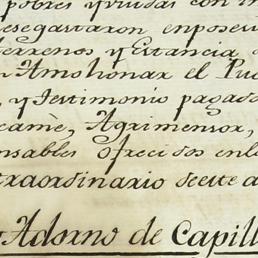 pobres yviudas con
esegastaron enposeci
terrenos y Estancia
n Amohonar el Pu
, y Testimonio pagado
came, Agrimensor,
nsables Ofrecidos enl
traordinario deeste a
Adorno de Capill